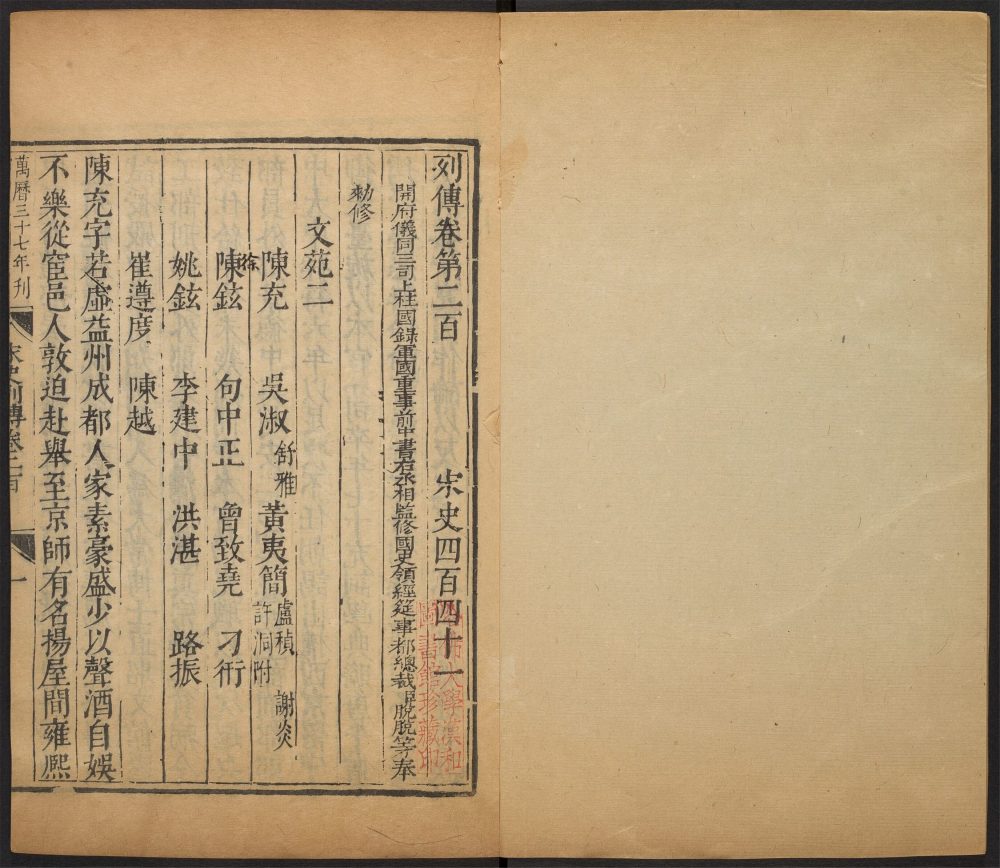 列傳卷第二百 宋史四百四十一
開府儀同三司上柱國錄軍國重事前中書右丞相監修國史領經筵事都總裁脫脫等奉
勑修
文苑二
陳充 吳淑 舒雅 黃夷簡 盧稹 謝炎 許洞附
徐
陳鉉 句中正 曾致堯 刁衎
姚鉉 李建中 洪湛 路振
崔遵度 陳越
陳充字若虛益州成都人家素豪盛少以聲酒自娛
不樂從宦邑人敦迫赴舉至京師有名揚屋間雍熙
萬曆三十七年刊
宋史列傳卷二百
一
哈佛大學漢和
圖書館珍藏印